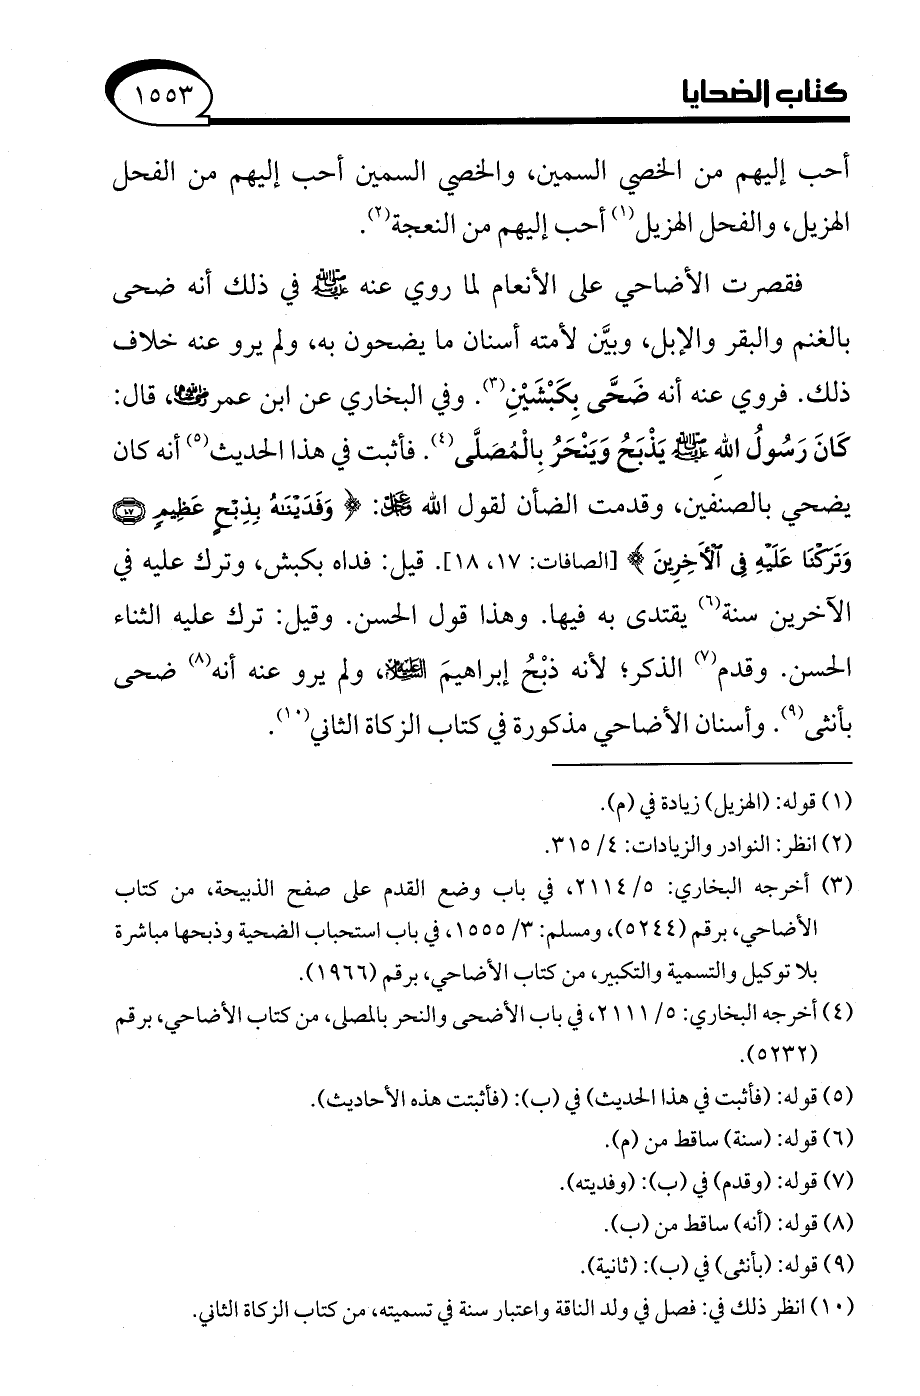 كتاب الضحايا ١٥٥٣
أحب إليهم من الخصي السمين، والخصي السمين أحب إليهم من الفحل
الهزيل، والفحل الهزيل(١) أحب إليهم من النعجة(٢).
فقصرت الأضاحي على الأنعام لما روي عنه ﷺ في ذلك أنه ضحى
بالغنم والبقر والإبل، وبيَّن لأمته أسنان ما يضحون به، ولم يرو عنه خلاف
ذلك. فروي عنه أنه ضَحَّى بِكَبْشَيْنِ(٣). وفي البخاري عن ابن عمر رضي الله عنهما، قال:
كَانَ رَسُولُ اللهِ ﷺ يَذْبَحُ وَيَنْحَرُ بِالْمُصَلَّى(٤). فأثبت في هذا الحديث(٥) أنه كان
يضحي بالصنفين، وقدمت الضأن لقول الله عز وجل: ﴿ وَفَدَيْنَٰهُ بِذِبْحٍ عَظِيمٍ ١٠٧
وَتَرَكْنَا عَلَيْهِ فِي ٱلْأَخِرِينَ ﴾ [الصافات: ١٧، ١٨]. قيل: فداه بكبش، وترك عليه في
الآخرين سنة(٦) يقتدى به فيها. وهذا قول الحسن. وقيل: ترك عليه الثناء
الحسن. وقدم(٧) الذكر؛ لأنه ذبْحُ إبراهيمَ عليه السلام، ولم يرو عنه أنه(٨) ضحى
بأنثى(٩). وأسنان الأضاحي مذكورة في كتاب الزكاة الثاني(١٠).
(١) قوله: (الهزيل) زيادة في (م).
(٢) انظر: النوادر والزيادات: ٤/ ٣١٥.
(٣) أخرجه البخاري: ٥/ ٢١١٤، في باب وضع القدم على صفح الذبيحة، من كتاب
الأضاحي، برقم (٥٢٤٤)، ومسلم: ٣/ ١٥٥٥، في باب استحباب الضحية وذبحها مباشرة
بلا توكيل والتسمية والتكبير، من كتاب الأضاحي، برقم (١٩٦٦).
(٤) أخرجه البخاري: ٥/ ٢١١١، في باب الأضحى والنحر بالمصلى، من كتاب الأضاحي، برقم
(٥٢٣٢).
(٥) قوله: (فأثبت في هذا الحديث) في (ب): (فأثبتت هذه الأحاديث).
(٦) قوله: (سنة) ساقط من (م).
(٧) قوله: (وقدم) في (ب): (وفديته).
(٨) قوله: (أنه) ساقط من (ب).
(٩) قوله: (بأنثى) في (ب): (ثانية).
(١٠) انظر ذلك في: فصل في ولد الناقة واعتبار سنة في تسميته، من كتاب الزكاة الثاني.